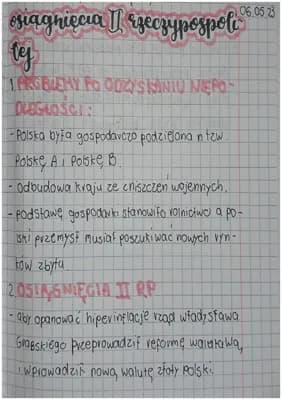 osiągnięcia II rzeczypospoli 06.05.23
tej
1. PROBLEMY PO ODZYSKANIU NIEPO-
DLEGŁOŚCI:
- Polska była gospodarczo podzielona n tzw.
Polskę A i Polskę B.
- odbudowa kraju ze zniszczeń wojennych.
- podstawę gospodarki stanowiło rolnictwo a po-
lski przemysł musiał poszukiwać nowych ryn-
ków zbytu
2. OSIĄGNIĘCIA II RP
- aby opanować hiperinflację rząd władysława
Grabskiego przeprowadził reformę walutową,
i wprowadził nową walutę złoty polski.